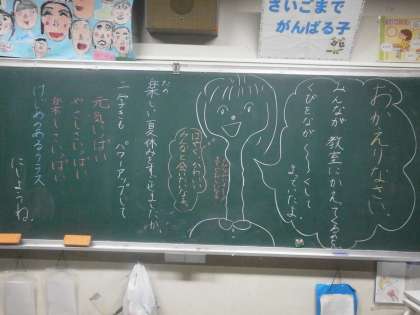 さいごまで
がんばる子
おかえりなさい。
みんなが教室にかえってくるを
くびをなが〜〜くして
まってたよ。
はやくかわいい
みんなと会いたいなぁ。
楽しい夏休みをすごせましたか。
二学きも パワーアップして
元気いっぱい
やさしさいっぱい
楽しさいっぱい
けじめのあるクラス
にしようね。